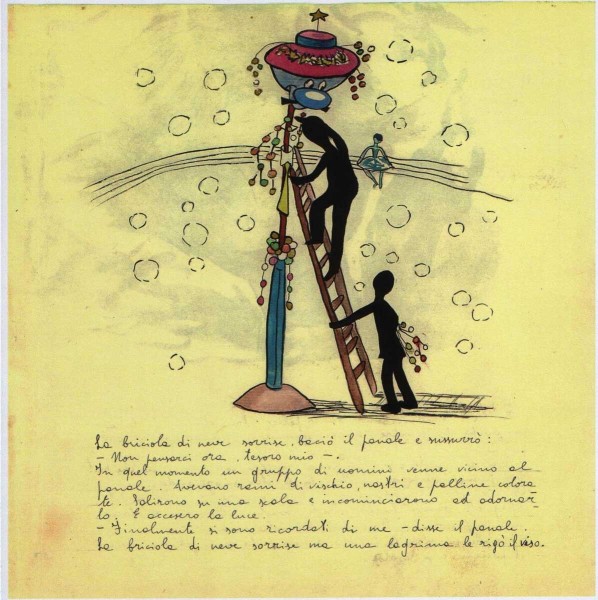 La briciola di neve sorrise, baciò il fanale e sussurrò:
- Non pensarci ora, tesoro mio -.
In quel momento un gruppo di uomini venne vicino al
fanale. Avevano rami di vischio, nastri e palline colora-
te. Salirono su una scala e incominciarono ad adornar-
lo. E accesero la luce.
- Finalmente si sono ricordati di me - disse il fanale.
La briciola di neve sorrise ma una lagrima le rigò il viso.